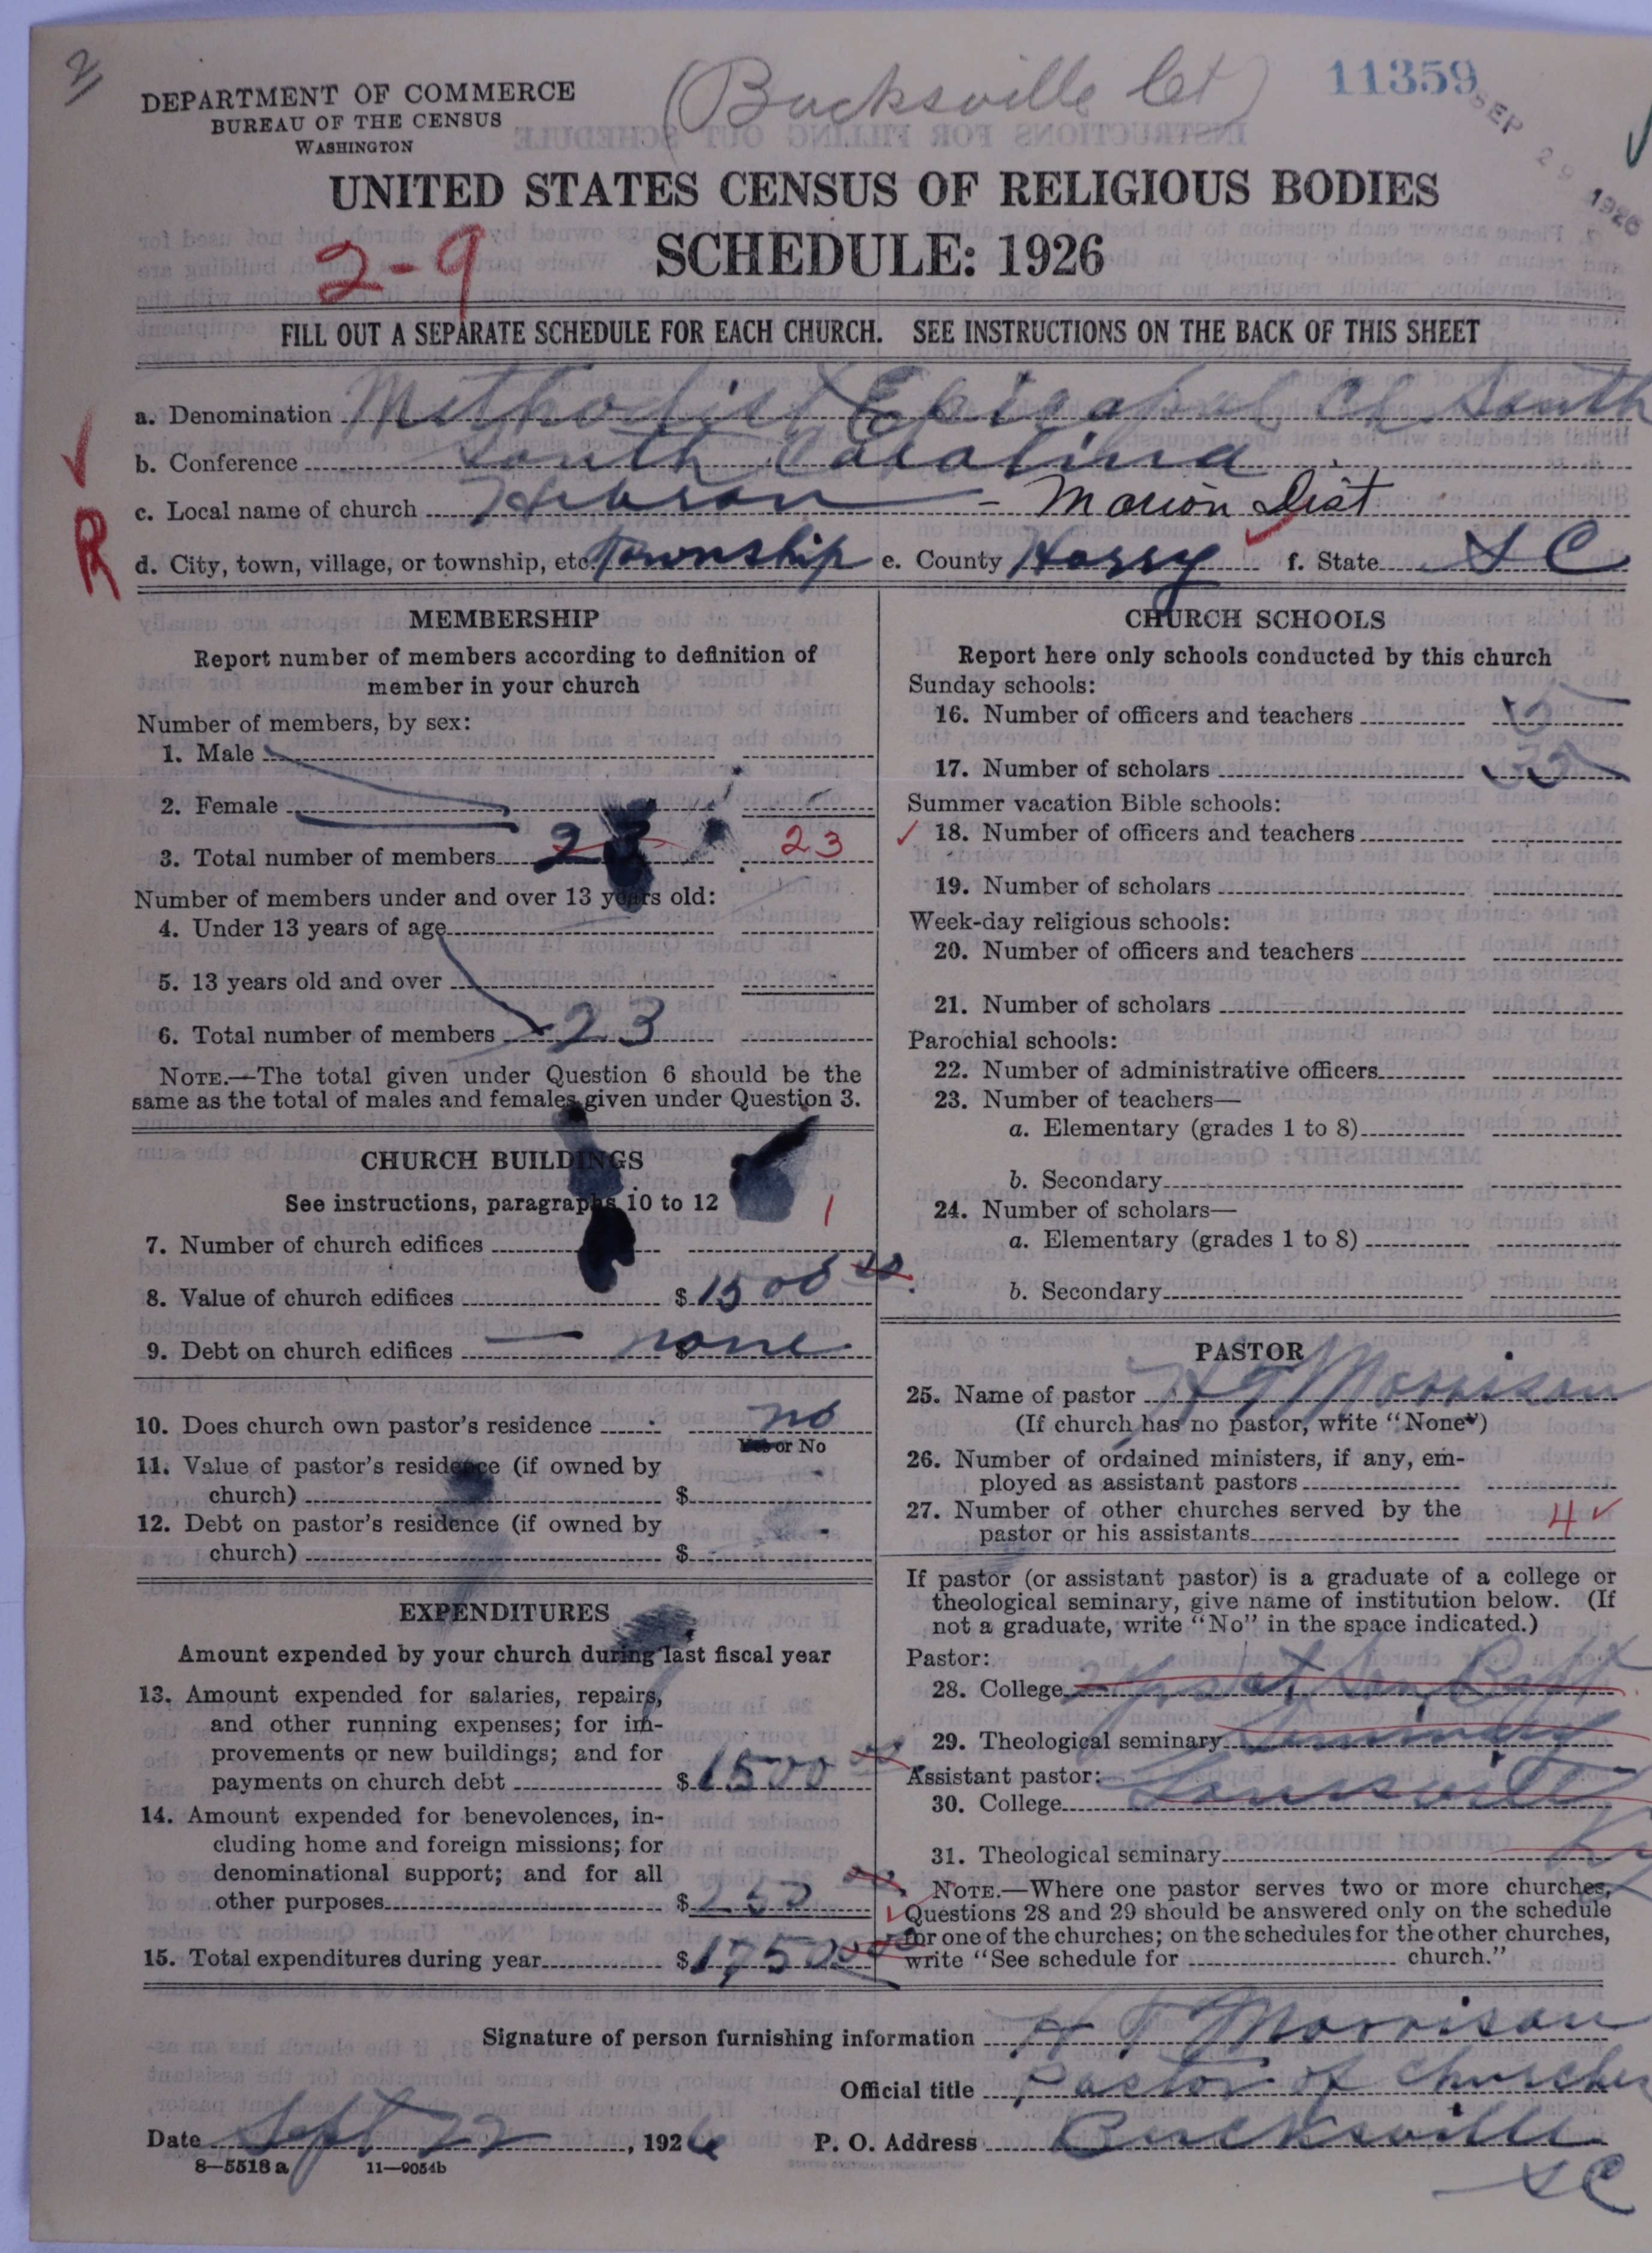 2
(Bucksville Ct)
11359
SEP 29 1926
DEPARTMENT OF COMMERCE
BUREAU OF THE CENSUS
WASHINGTON
UNITED STATES CENSUS OF RELIGIOUS BODIES
SCHEDULE: 1926
2-9
FILL OUT A SEPARATE SCHEDULE FOR EACH CHURCH. SEE INSTRUCTIONS ON THE BACK OF THIS SHEET
a. Denomination Methodist Episcopal Ch South
b. Conference South Carolina
c. Local name of church Hebron - Marion Dist
R
d. City, town, village, or township, etc. Township e. County Horry f. State S C
MEMBERSHIP
Report number of members according to definition of
member in your church
Number of members, by sex:
1. Male
2. Female
3. Total number of members 23 23
Number of members under and over 13 years old:
4. Under 13 years of age
5. 13 years old and over
6. Total number of members 23
NOTE.—The total given under Question 6 should be the
same as the total of males and females given under Question 3.
CHURCH BUILDINGS
See instructions, paragraphs 10 to 12
7. Number of church edifices 1
8. Value of church edifices $1500 00
9. Debt on church edifices $ none
10. Does church own pastor's residence no
Yes or No
11. Value of pastor's residence (if owned by
church) $
12. Debt on pastor's residence (if owned by
church) $
EXPENDITURES
Amount expended by your church during last fiscal year
13. Amount expended for salaries, repairs,
and other running expenses; for im-
provements or new buildings; and for
payments on church debt $1500 00
14. Amount expended for benevolences, in-
cluding home and foreign missions; for
denominational support; and for all
other purposes $250 00
15. Total expenditures during year $1750 00
CHURCH SCHOOLS
Report here only schools conducted by this church
Sunday schools:
16. Number of officers and teachers 5
17. Number of scholars 35
Summer vacation Bible schools:
18. Number of officers and teachers
19. Number of scholars
Week-day religious schools:
20. Number of officers and teachers
21. Number of scholars
Parochial schools:
22. Number of administrative officers
23. Number of teachers—
a. Elementary (grades 1 to 8)
b. Secondary
24. Number of scholars—
a. Elementary (grades 1 to 8)
b. Secondary
PASTOR
25. Name of pastor H T Morrison
(If church has no pastor, write "None")
26. Number of ordained ministers, if any, em-
ployed as assistant pastors
27. Number of other churches served by the
pastor or his assistants 4
If pastor (or assistant pastor) is a graduate of a college or
theological seminary, give name of institution below. (If
not a graduate, write "No" in the space indicated.)
Pastor:
28. College Bapt
29. Theological seminary Seminary
Assistant pastor:
30. College Louisville
31. Theological seminary Ky
NOTE.—Where one pastor serves two or more churches,
Questions 28 and 29 should be answered only on the schedule
for one of the churches; on the schedules for the other churches,
write "See schedule for church."
Signature of person furnishing information H T Morrison
Official title Pastor of Churches
Date Sept 22, 1926 P. O. Address Bucksville
S C
8—5518 a 11—9054b